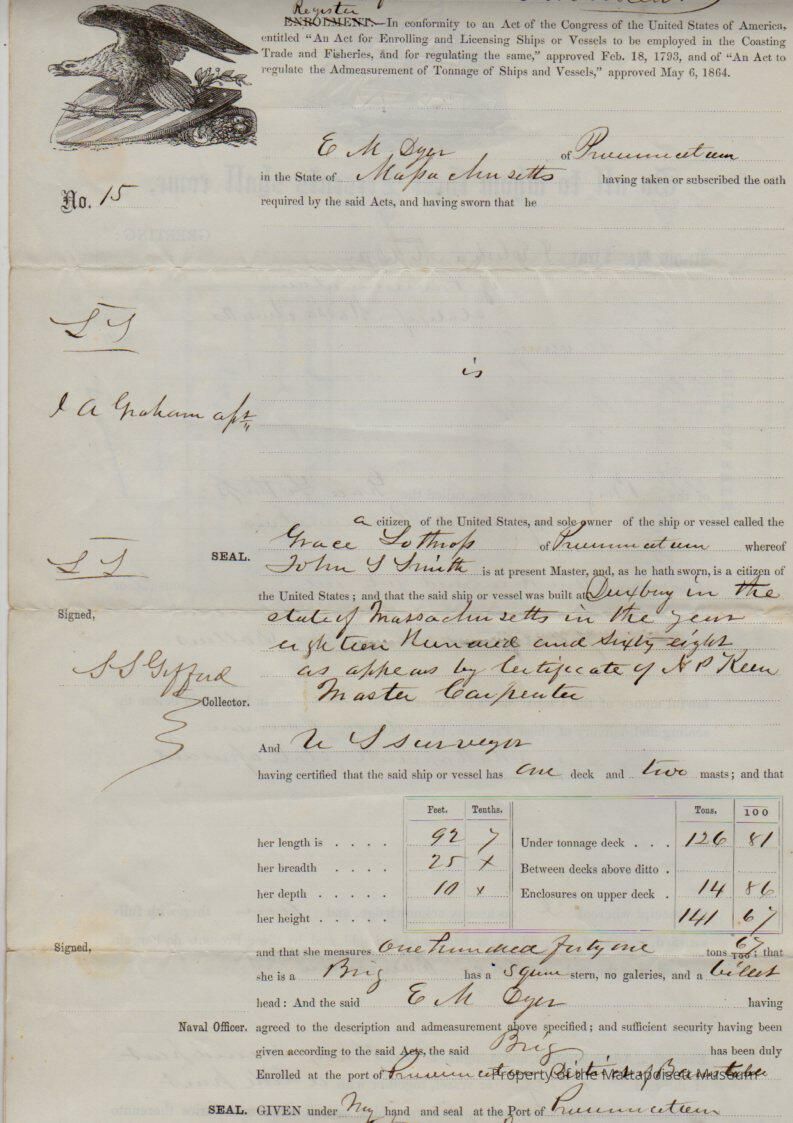 Register
ENROLMENT.—In conformity to an Act of the Congress of the United States of America,
entitled "An Act for Enrolling and Licensing Ships or Vessels to be employed in the Coasting
Trade and Fisheries, and for regulating the same," approved Feb. 18, 1793, and of "An Act to
regulate the Admeasurement of Tonnage of Ships and Vessels," approved May 6, 1864.
E M Dyer of Provincetown
in the State of Massachusetts having taken or subscribed the oath
No. 15
required by the said Acts, and having sworn that he
L S
is
J A Graham
a citizen of the United States, and sole owner of the ship or vessel called the
Grace Lothrop of Provincetown whereof
L S
SEAL.
John S Smith is at present Master, and, as he hath sworn, is a citizen of
the United States; and that the said ship or vessel was built at Duxbury in the
Signed,
state of Massachusetts in the year
eighteen Hundred and sixty eight
S S Gifford
as appears by Certificate of N P Keen
Collector.
Master Carpenter
And U S surveyor
having certified that the said ship or vessel has one deck and two masts; and that
Feet. Tenths. Tons. 100
her length is . . . . 92 7 Under tonnage deck . . . 126 81
her breadth . . . . 25 x Between decks above ditto .
her depth . . . . . 10 x Enclosures on upper deck . 14 86
her height . . . . . 141 67
Signed,
and that she measures one hundred forty one tons 67/100; that
she is a Brig has a square stern, no galeries, and a billet
head: And the said E M Dyer having
Naval Officer. agreed to the description and admeasurement above specified; and sufficient security having been
given according to the said Acts, the said Brig has been duly
Enrolled at the port of Provincetown District of Barnstable
Property of the Mattapoisett Museum
SEAL. GIVEN under My hand and seal at the Port of Provincetown